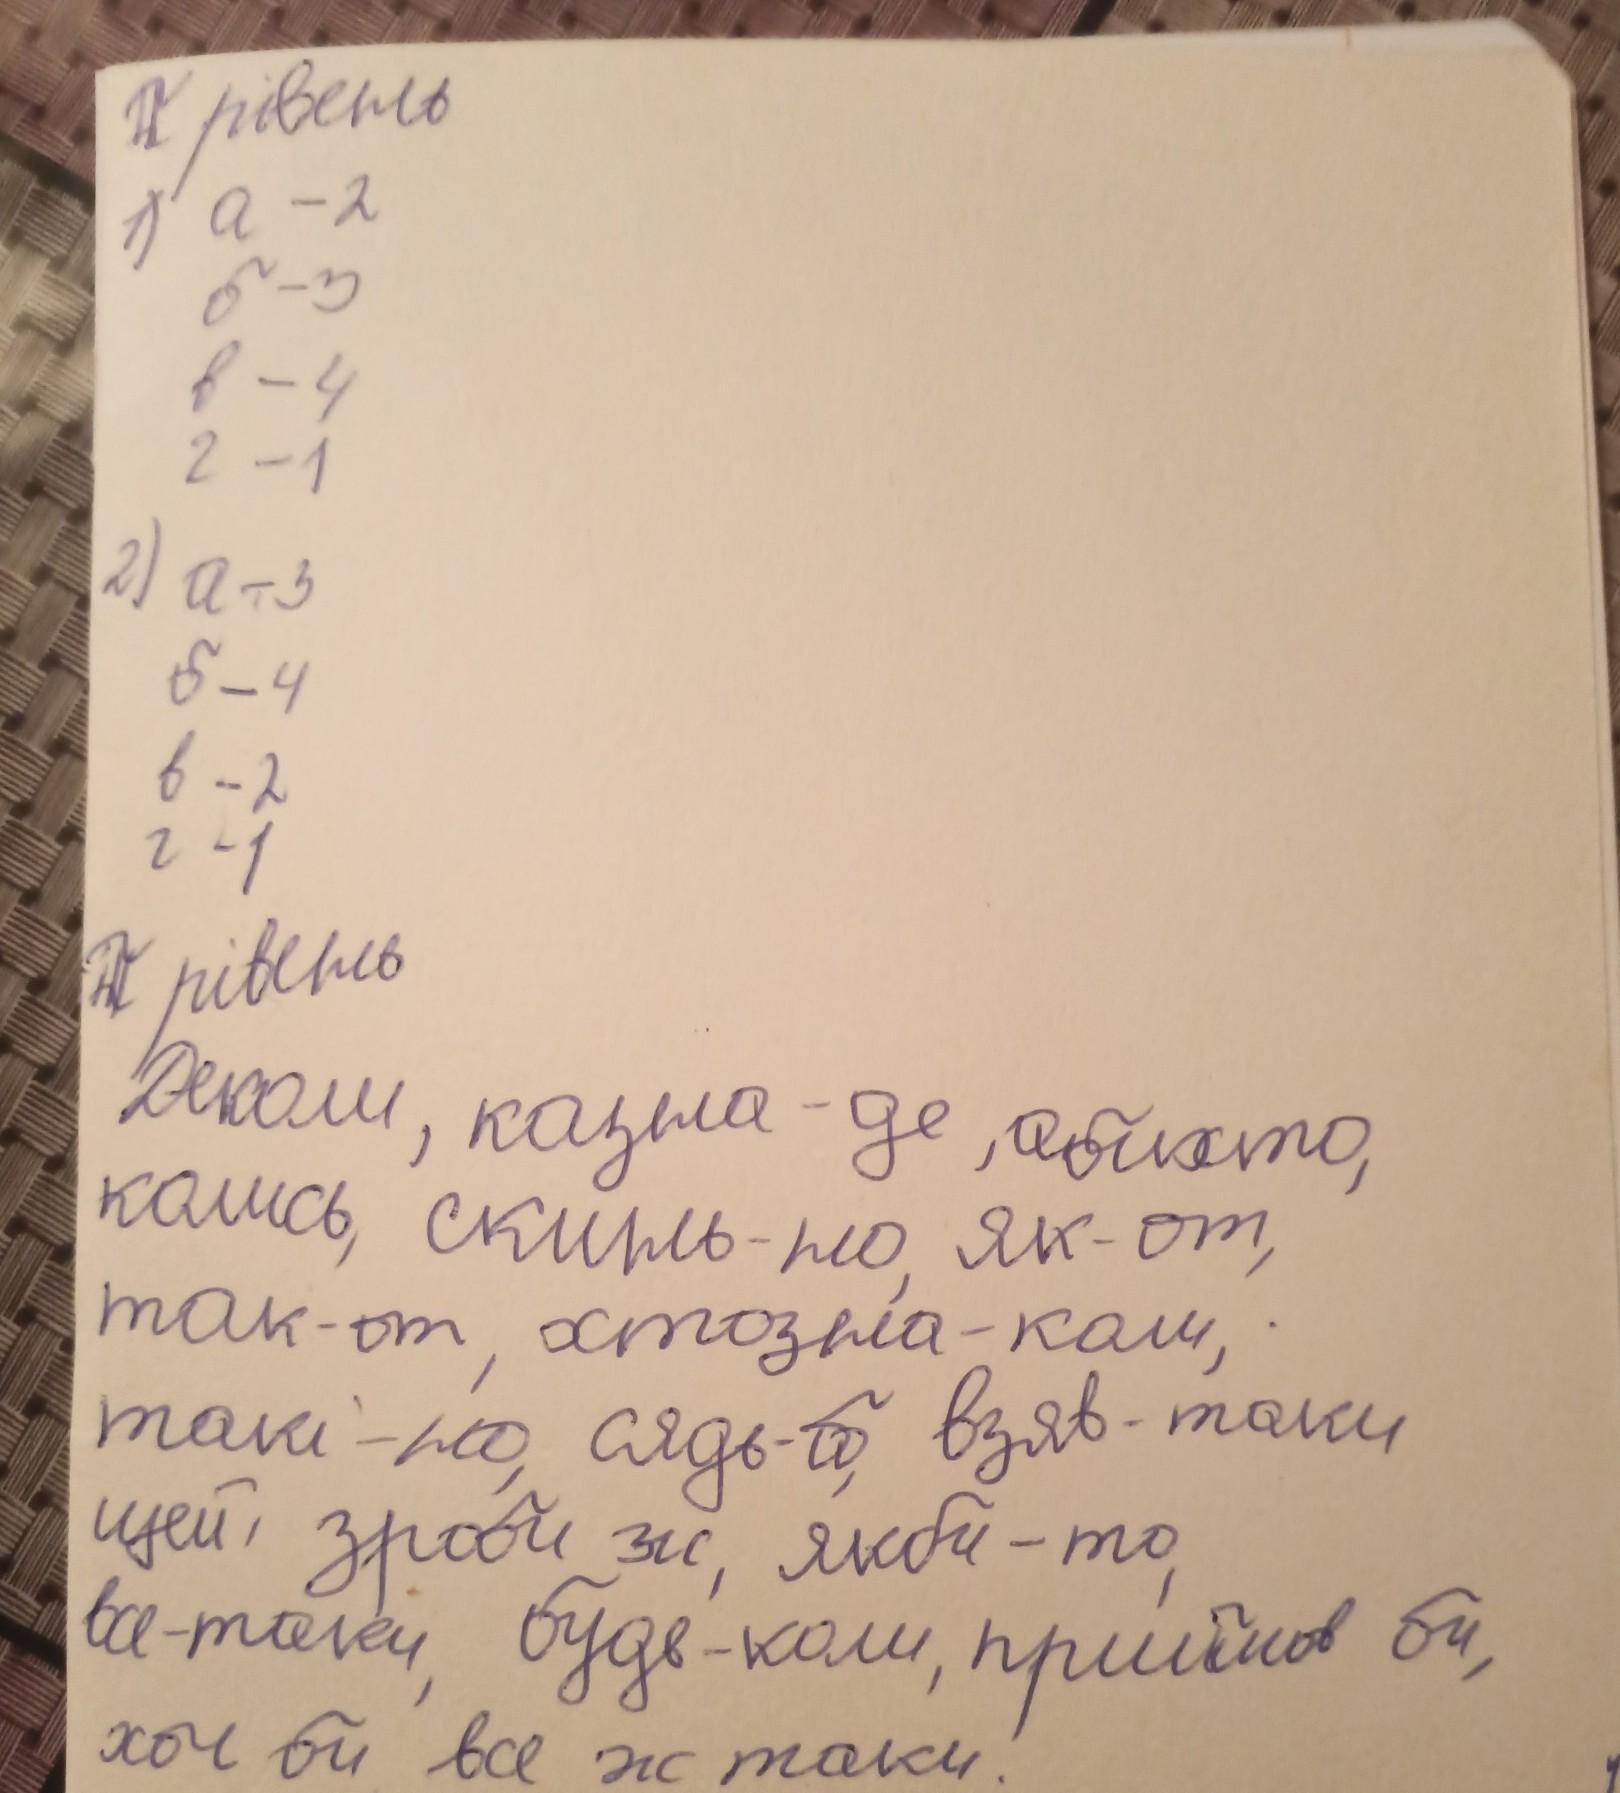 II рівень
1) а - 2
б - 3
в - 4
г - 1
2) а - 3
б - 4
в - 2
г - 1
III рівень
Деколи, казна-де, абихто,
колись, скинь-но, як-от,
так-от, хтозна-коли,
такі-но, сядь-бо, взяв-таки
цей, зроби ж, якби-то,
все-таки, будь-коли, прийшов би,
хоч би все ж таки.